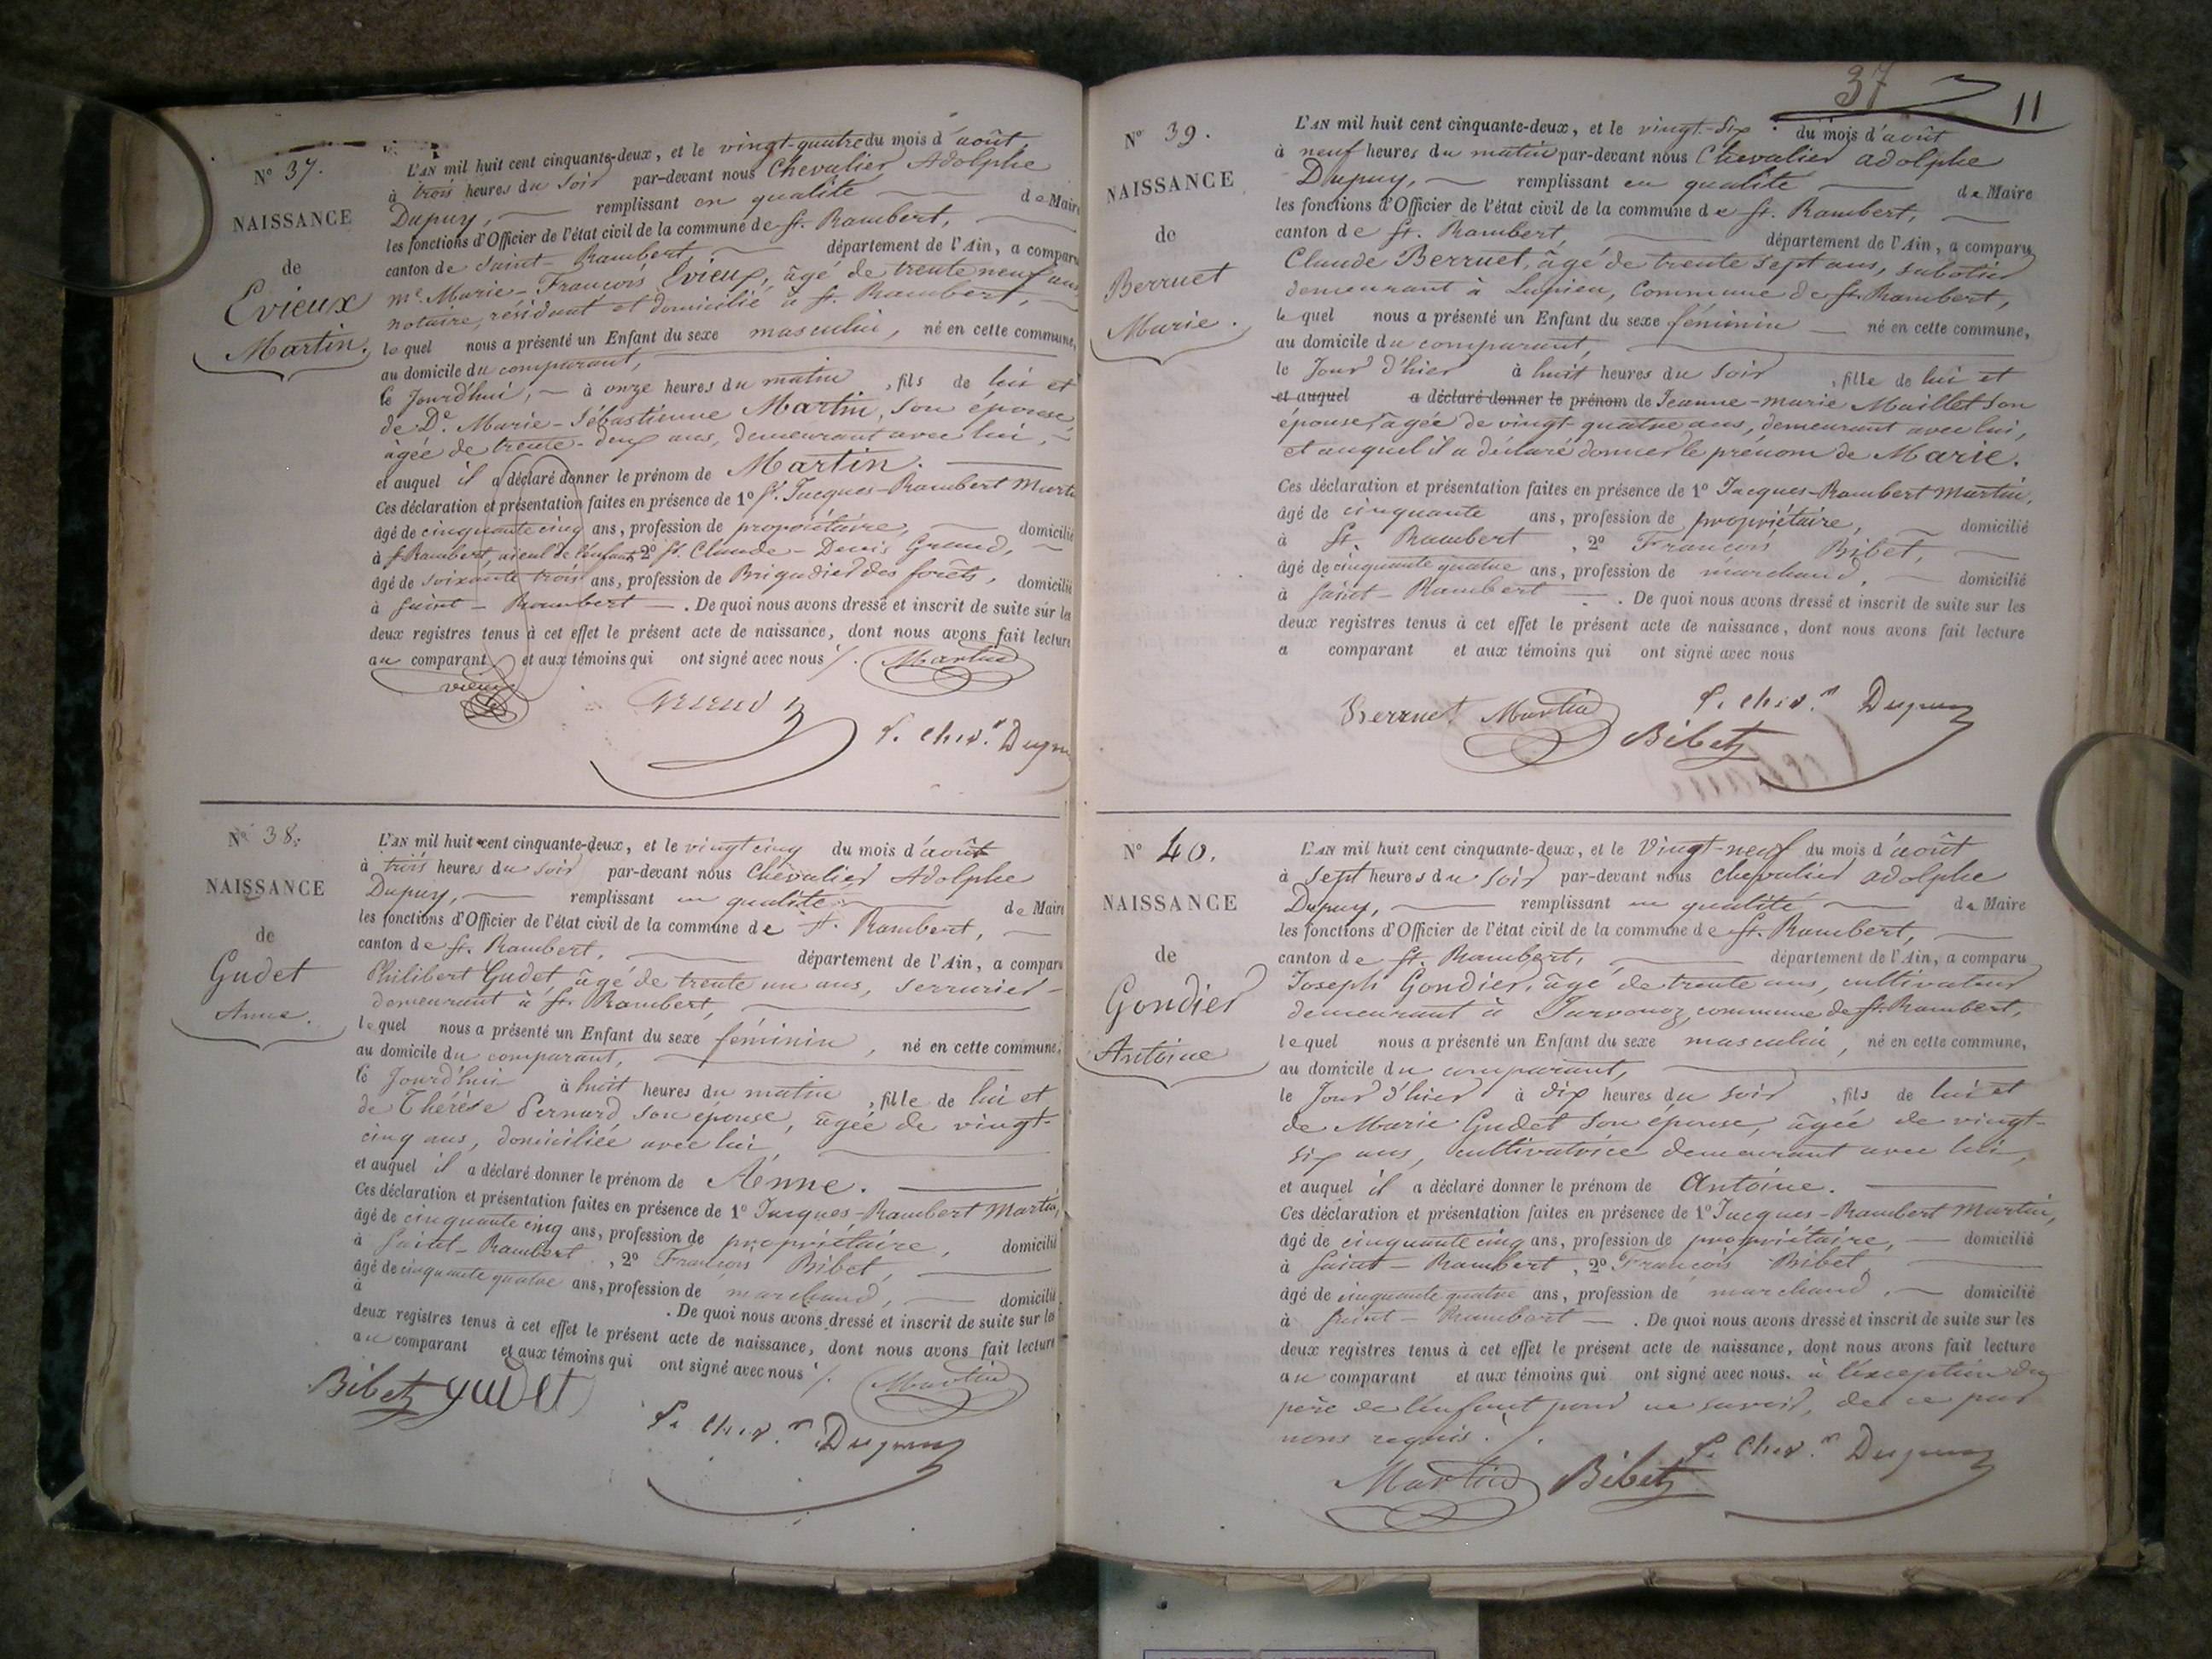 N° 37.
NAISSANCE
de
Evieux
Martin.
L'AN mil huit cent cinquante-deux, et le vingt-quatre du mois d'août,
à trois heures du soir par-devant nous Chevalier Adolphe
Dupuy, remplissant en qualité de Maire
les fonctions d'Officier de l'état civil de la commune de St. Rambert,
canton de Saint-Rambert, département de l'Ain, a comparu
Me. Marie-François Evieux, âgé de trente neuf ans
notaire, résidant et domicilié à St. Rambert,
lequel nous a présenté un Enfant du sexe masculin, né en cette commune,
au domicile du comparant,
le Jourd'hui, à onze heures du matin, fils de lui et
de De. Marie-Sébastienne Martin, son épouse,
âgée de trente-deux ans, demeurant avec lui,
et auquel il a déclaré donner le prénom de Martin.
Ces déclaration et présentation faites en présence de 1° Sr. Jacques-Rambert Martin
âgé de cinquante cinq ans, profession de propriétaire, domicilié
à St Rambert, aieul de l'enfant, 2° Sr. Claude-Denis Grand,
âgé de soixante trois ans, profession de Brigadier des forêts, domicilié
à Saint-Rambert. De quoi nous avons dressé et inscrit de suite sur les
deux registres tenus à cet effet le présent acte de naissance, dont nous avons fait lecture
au comparant et aux témoins qui ont signé avec nous ./. Martin
vieux
Grand
P. Cher. Dupuy
N° 38.
NAISSANCE
de
Gudet
Anne.
L'AN mil huit cent cinquante-deux, et le vingt cinq du mois d'août
à trois heures du soir par-devant nous Chevalier Adolphe
Dupuy, remplissant en qualité de Maire
les fonctions d'Officier de l'état civil de la commune de St. Rambert,
canton de St. Rambert, département de l'Ain, a comparu
Philibert Gudet, âgé de trente un ans, serrurier
demeurant à St. Rambert,
lequel nous a présenté un Enfant du sexe féminin, né en cette commune,
au domicile du comparant,
le Jourd'hui à huit heures du matin, fille de lui et
de Thérèse Pernard, son épouse, âgée de vingt-
cinq ans, domiciliée avec lui,
et auquel il a déclaré donner le prénom de Anne.
Ces déclaration et présentation faites en présence de 1° Jacques-Rambert Martin,
âgé de cinquante cinq ans, profession de propriétaire, domicilié
à Saint-Rambert, 2° François Bibet,
âgé de cinquante quatre ans, profession de marchand, domicilié
à . De quoi nous avons dressé et inscrit de suite sur les
deux registres tenus à cet effet le présent acte de naissance, dont nous avons fait lecture
au comparant et aux témoins qui ont signé avec nous ./. Martin
Bibet gudet
P. Cher. Dupuy
37 11
N° 39.
NAISSANCE
de
Berruet
Marie.
L'AN mil huit cent cinquante-deux, et le vingt-six du mois d'août
à neuf heures du matin par-devant nous Chevalier adolphe
Dupuy, remplissant en qualité de Maire
les fonctions d'Officier de l'état civil de la commune de St. Rambert,
canton de St. Rambert, département de l'Ain, a comparu
Claude Berruet, âgé de trente sept ans, sabotier
demeurant à Lupieu, Commune de St. Rambert,
lequel nous a présenté un Enfant du sexe féminin né en cette commune,
au domicile du comparant,
le Jour d'hier à huit heures du soir, fille de lui et
et auquel a déclaré donner le prénom de Jeanne-marie Maillet son
épouse, âgée de vingt-quatre ans, demeurant avec lui,
et auquel il a déclaré donner le prénom de Marie.
Ces déclaration et présentation faites en présence de 1° Jacques-Rambert Martin,
âgé de cinquante ans, profession de propriétaire, domicilié
à St. Rambert, 2° François Bibet,
âgé de cinquante quatre ans, profession de marchand, domicilié
à Saint-Rambert. De quoi nous avons dressé et inscrit de suite sur les
deux registres tenus à cet effet le présent acte de naissance, dont nous avons fait lecture
a comparant et aux témoins qui ont signé avec nous
Berruet Martin P. Cher. Dupuy
Bibet
N° 40.
NAISSANCE
de
Gondier
Antoine
L'AN mil huit cent cinquante-deux, et le Vingt-neuf du mois d'août
à sept heures du soir par-devant nous chevalier adolphe
Dupuy, remplissant en qualité de Maire
les fonctions d'Officier de l'état civil de la commune de St. Rambert,
canton de St. Rambert, département de l'Ain, a comparu
Joseph Gondier, âgé de trente ans, cultivateur
demeurant à Javornoz, commune de St. Rambert,
lequel nous a présenté un Enfant du sexe masculin, né en cette commune,
au domicile du comparant,
le Jour d'hier à dix heures du soir, fils de lui et
de Marie Gudet son épouse, âgée de vingt-
six ans, cultivatrice demeurant avec lui,
et auquel il a déclaré donner le prénom de Antoine.
Ces déclaration et présentation faites en présence de 1° Jacques-Rambert Martin,
âgé de cinquante cinq ans, profession de propriétaire, domicilié
à Saint-Rambert, 2° François Bibet,
âgé de cinquante quatre ans, profession de marchand, domicilié
à Saint-Rambert. De quoi nous avons dressé et inscrit de suite sur les
deux registres tenus à cet effet le présent acte de naissance, dont nous avons fait lecture
au comparant et aux témoins qui ont signé avec nous. à l'exception du
père de l'enfant pour ne savoir, de ce par
nous requis. ./.
Martin Bibet P. Cher. Dupuy